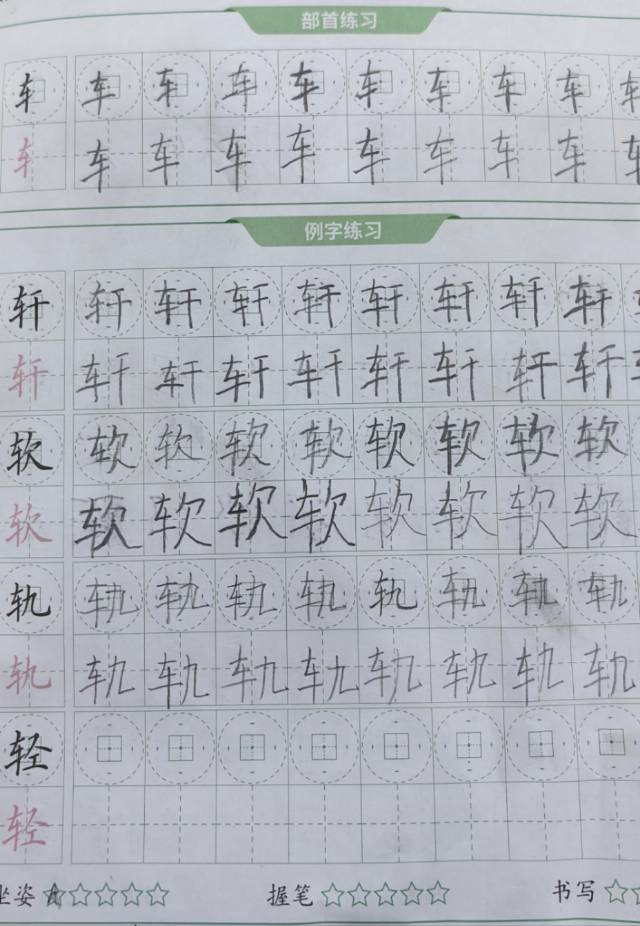 部首练习
车 车 车 车 车 车 车 车 车
车 车 车 车 车 车 车 车 车
例字练习
轩 轩 轩 轩 轩 轩 轩 轩 轩
轩 轩 轩 轩 轩 轩 轩 轩 轩
软 软 软 软 软 软 软 软 软
软 软 软 软 软 软 软 软 软
轨 轨 轨 轨 轨 轨 轨 轨 轨
轨 轨 轨 轨 轨 轨 轨 轨 轨
轻
轻
坐姿 握笔 书写